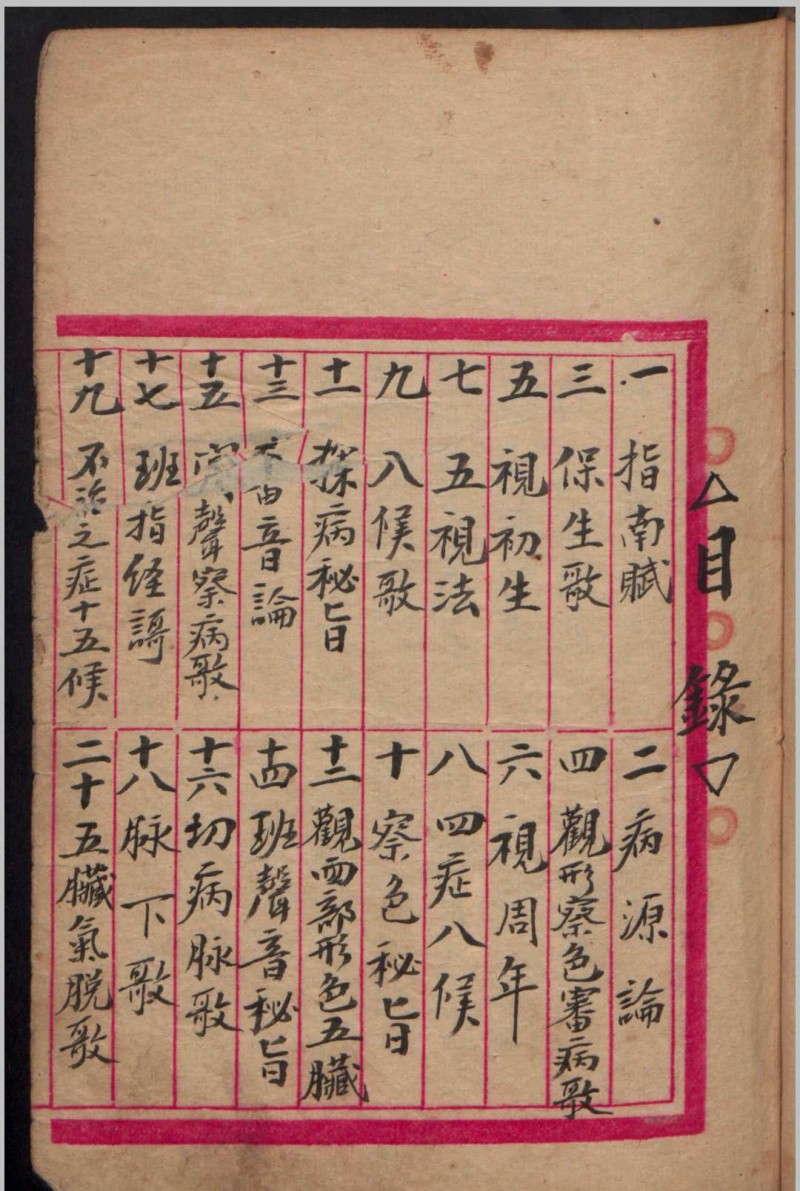 目錄
一 指南賦
二 病源論
三 保生歌
四 觀形察色審病歌
五 視初生
六 視周年
七 五視法
八 四症八候
九 八候歌
十 察色秘旨
十一 探病秘旨
十二 觀面部形色五臟
十三 不由音論
十四 班聲音秘旨
十五 聲察病歌
十六 切病脉歌
十七 班指経謌
十八 脉下歌
十九 不治之症十五候
二十 五臟氣脱歌